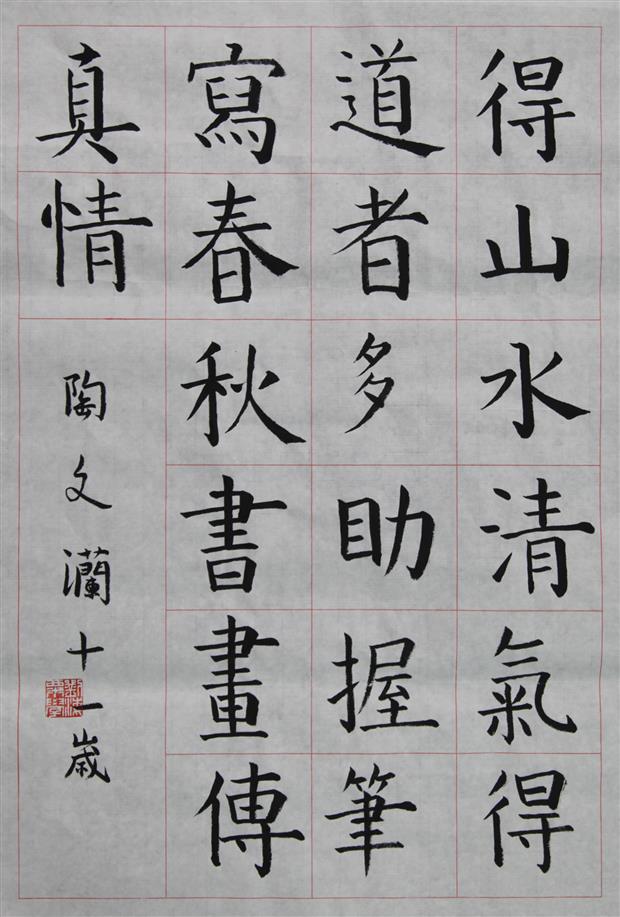 得山水清氣得
道者多助握筆
寫春秋書畫傳
真情
陶文瀾十一歲